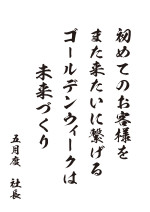 初めてのお客様を
また来たいに繋げる
ゴールデンウィークは
未来づくり
五月度 社長